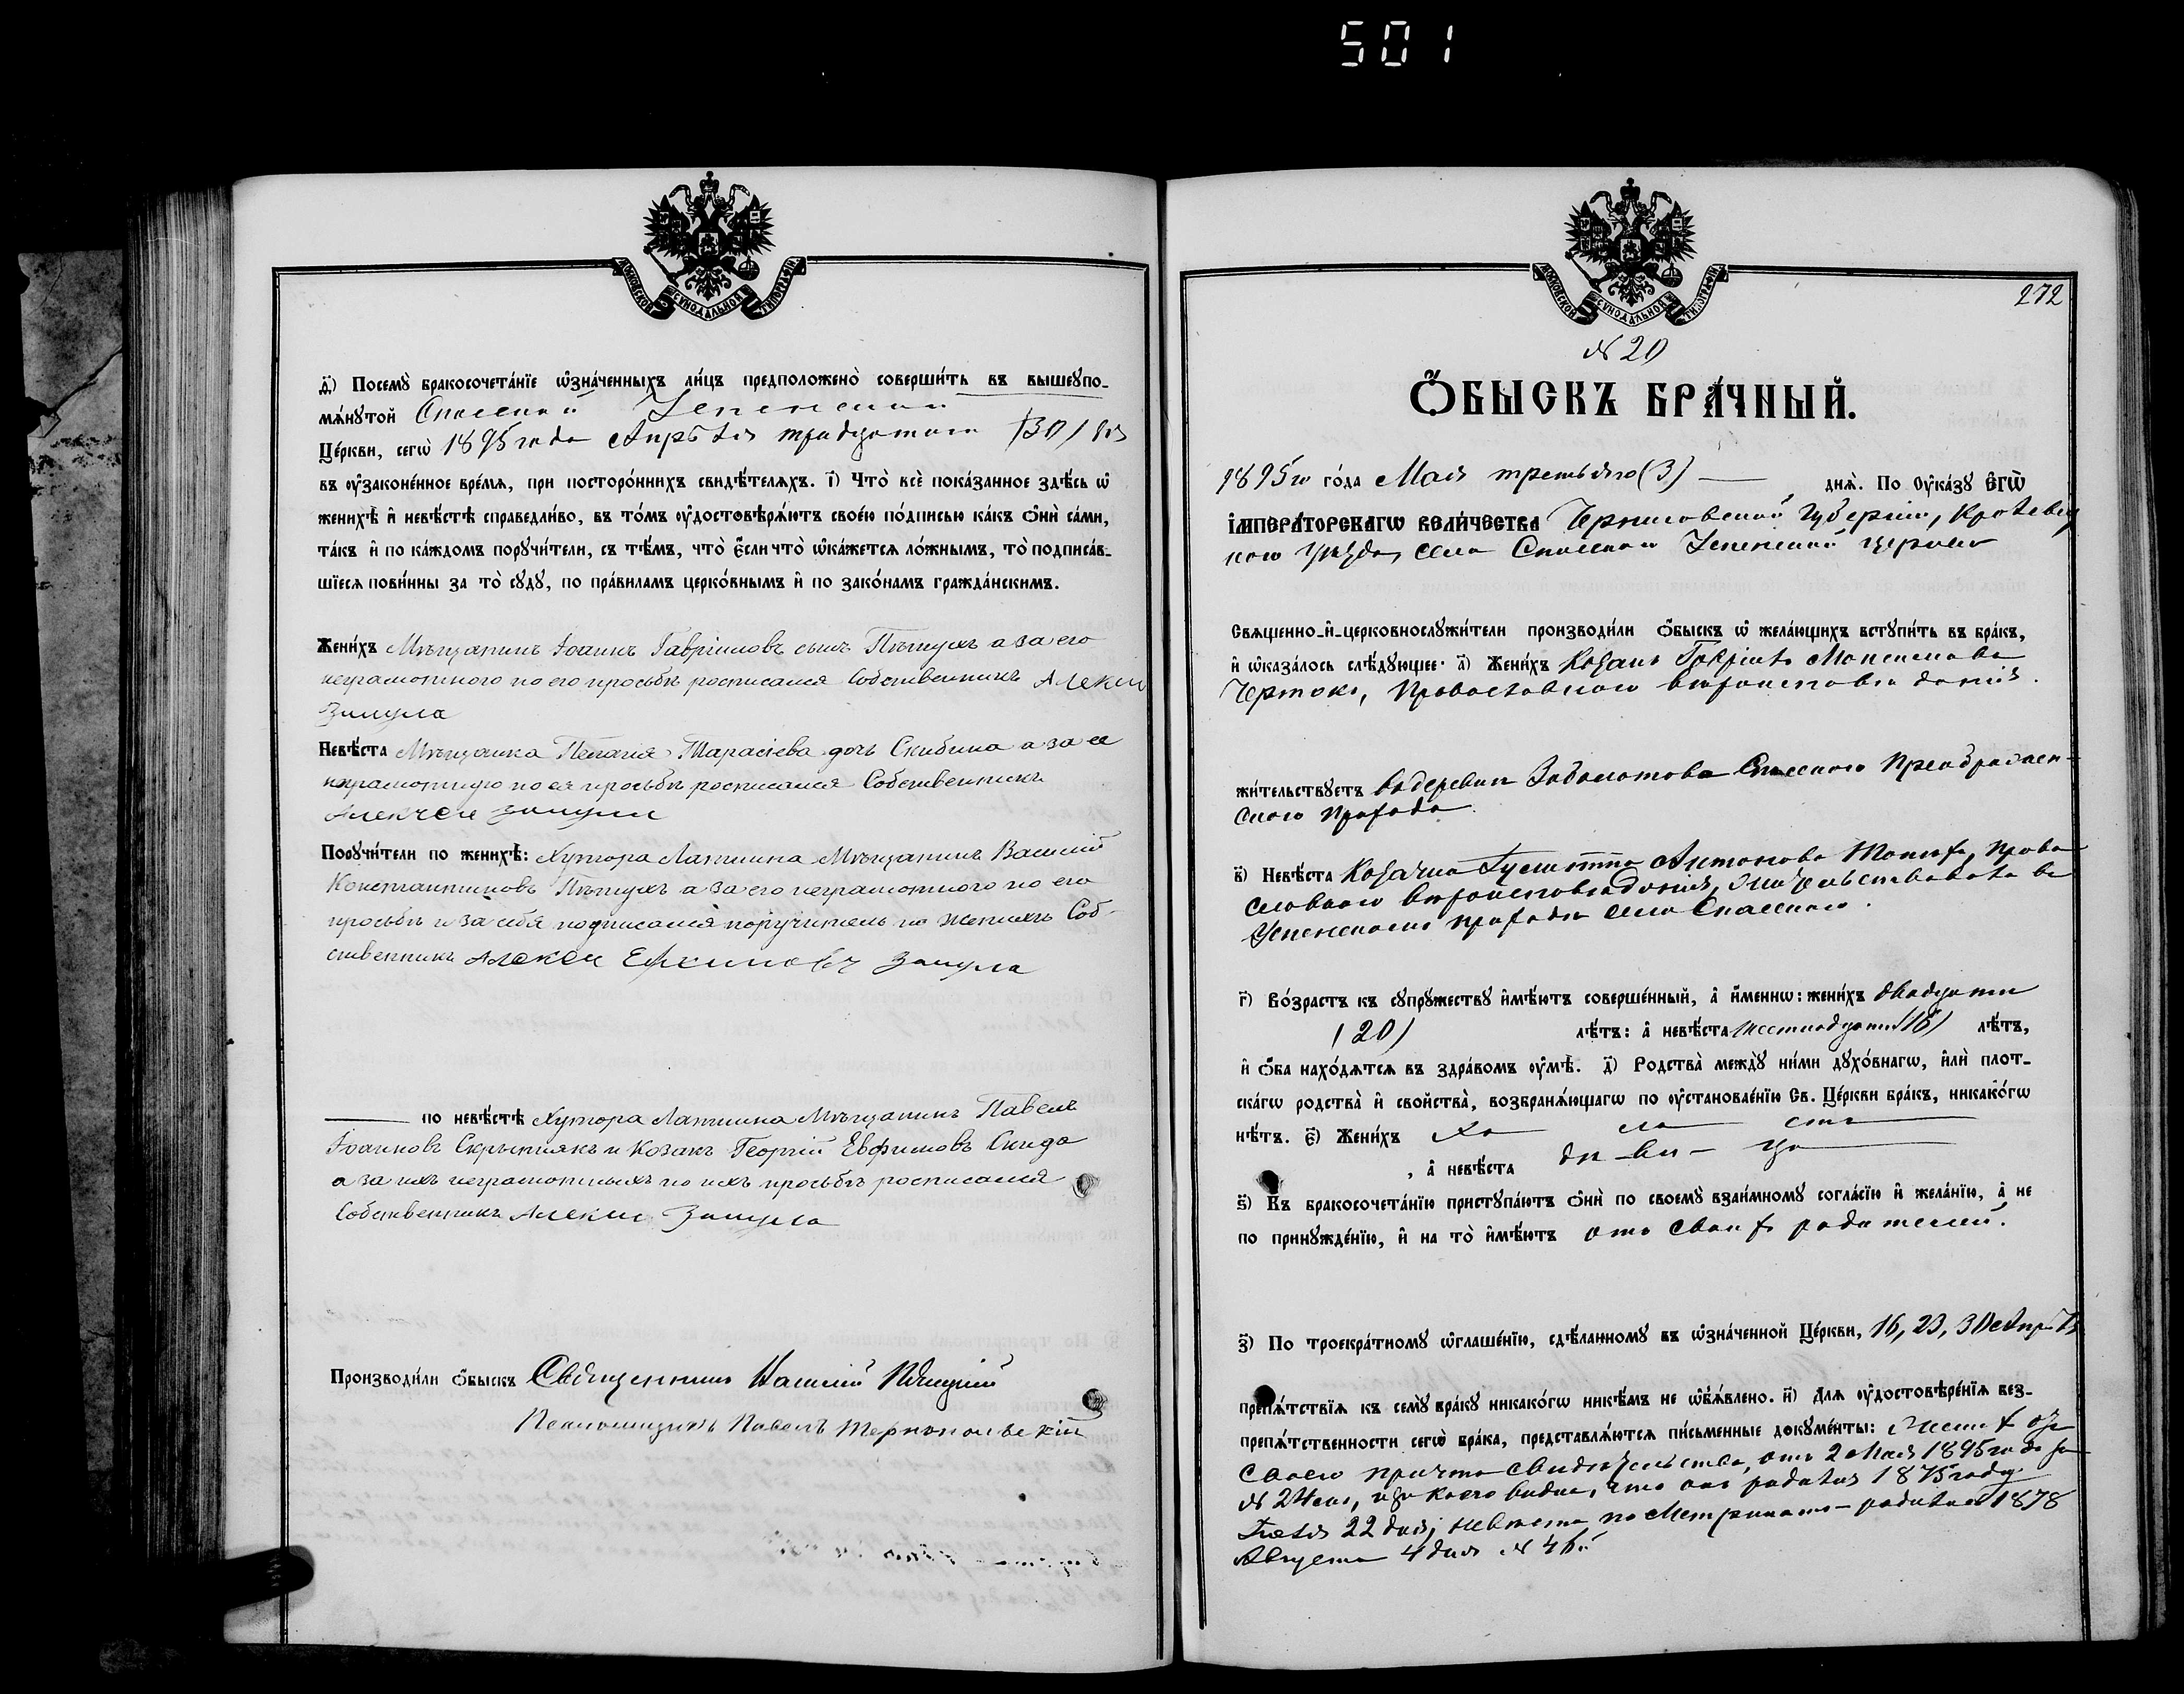 501
МОСКОВСКОЙ СѴНОДАЛЬНОЙ ТИПОГРАФІИ
д҃і) Посемꙋ̀ бракосочета́нїе ѡ҆зна́ченныхъ ли́цъ предположено̀ соверши́ть въ вышеꙋпо-
мѧ́нꙋтой Спасской Успенской
Це́ркви, сегѡ̀ 1895 года Апрѣля тридцатаго (30) дня
въ ᲂу҆законе́нное вре́мѧ, при посторо́ннихъ свидѣ́телѧхъ. і҃) Что̀ всѐ пока́занное здѣ́сь ѡ҆
женихѣ̀ и҆ невѣ́стѣ справедли́во, въ то́мъ ᲂу҆достовѣрѧ́ютъ свое́ю по́дписью ка́къ ѻ҆нѝ са́ми,
та́къ и҆ по ка́ждомъ порꙋчи́тели, съ тѣ́мъ, что̀ є҆́сли что̀ ѡ҆ка́жетсѧ ло́жнымъ, то̀ подписа́в-
шїесѧ пови́нны за то̀ сꙋдꙋ̀, по пра́виламъ церко́внымъ и҆ по зако́намъ гражда́нскимъ.
Жени́хъ Мѣщанинъ Іоаннъ Гавріиловъ сынъ Пѣтухъ а за его
неграмотного по его просьбѣ росписался Собственникъ Алексей
Зинула
Невѣ́ста Мѣщанка Пелагія Тарасіева дочь Скибина а за ее
неграмотную по ея просьбѣ росписался Собственникъ
Алексей
Порꙋчи́тели по женихѣ̀: Хутора Лапшина Мѣщанинъ Василій
Константиновъ Пѣтухъ а за его неграмотного по его
просьбѣ и за себя подписался поручитель по женихѣ Соб-
ственникъ Алексей Ефимовъ
по невѣ́стѣ Хутора Лапшина Мѣщанинъ Павелъ
Іоанновъ Скрыпнякъ и Козакъ Георгій Евфимовъ Скида
а за ихъ неграмотныхъ по ихъ просьбѣ росписался
Собственникъ Алексей
Производи́ли ѻ҆́быскъ Священникъ Василій
Псаломщикъ Павелъ Тернопольскій
МОСКОВСКОЙ СѴНОДАЛЬНОЙ ТИПОГРАФІИ
272
№ 20
Ѻ҆́БЫСКЪ БРА́ЧНЫЙ.
1895го го́да Мая третьяго (3) днѧ̀. По ᲂу҆ка́зꙋ Є҆гѡ̀
І҆мпера́торскагѡ вели́чества Черниговской Губерніи, Кролевец-
каго Уѣзда, села Спасскаго Успенской церкви
Свѧщенно-и҆-церковнослꙋжи́тели производи́ли ѻ҆́быскъ ѡ҆ жела́ющихъ встꙋпи́ть въ бра́къ,
и҆ ѡ҆каза́лось слѣ́дꙋющее: а҃) Жени́хъ Козакъ Гавріилъ Максимова
Чертокъ, Православнаго вѣроисповѣданія.
жи́тельствꙋетъ въ деревни Заболотова Спасскаго Преображен-
скаго прихода
в҃) Невѣ́ста Козачка Іустина Антонова Право-
славнаго вѣроисповѣданія, жительствовала въ
Успенскомъ приходѣ села Спасскаго.
г҃) Во́зрастъ къ сꙋпрꙋ́жествꙋ и҆мѣ́ютъ соверше́нный, а҆ и҆́меннѡ: жени́хъ двадцати
(20) лѣ́тъ: а҆ невѣ́ста шестнадцати (16) лѣ́тъ,
и҆ ѻ҆́ба нахо́дѧтсѧ въ здра́вомъ ᲂу҆мѣ̀. д҃) Родства̀ междꙋ̀ ни́ми дꙋхо́внагѡ, и҆лѝ плот-
ска́гѡ родства̀ и҆ сво́йства, возбранѧ́ющагѡ по ᲂу҆становле́нїю Св. Це́ркви бра́къ, никако́гѡ
нѣ́тъ. є҃) Жени́хъ хо ло стъ
, а҆ невѣ́ста дѣ-ви-ца
ѕ҃) Къ бракосочета́нїю пристꙋпа́ютъ ѻ҆нѝ по своемꙋ̀ взаи́мномꙋ согла́сїю и҆ жела́нїю, а҆ не
по принꙋжде́нїю, и҆ на то̀ и҆мѣ́ютъ отъ своихъ родителей.
з҃) По троекра́тномꙋ ѡ҆глаше́нїю, сдѣ́ланномꙋ въ ѡ҆зна́ченной Це́ркви, 16, 23, 30 Апрѣля
препѧ́тствїѧ къ семꙋ̀ бра́кꙋ никако́гѡ никѣ́мъ не ѡ҆б̾ѧ́влено. и҃) Длѧ ᲂу҆достовѣре́нїѧ без-
препѧ́тственности сегѡ̀ бра́ка, представлѧ́ютсѧ пи́сьменные докꙋме́нты: Жених
своего причта свидѣтельство, отъ 2 Мая 1895 года за
№ 24 изъ коего видно, что онъ родился 1875 году
Іюля 22 дня; невѣста по Метрикамъ родилась 1878
Августа 4 дня № 46й